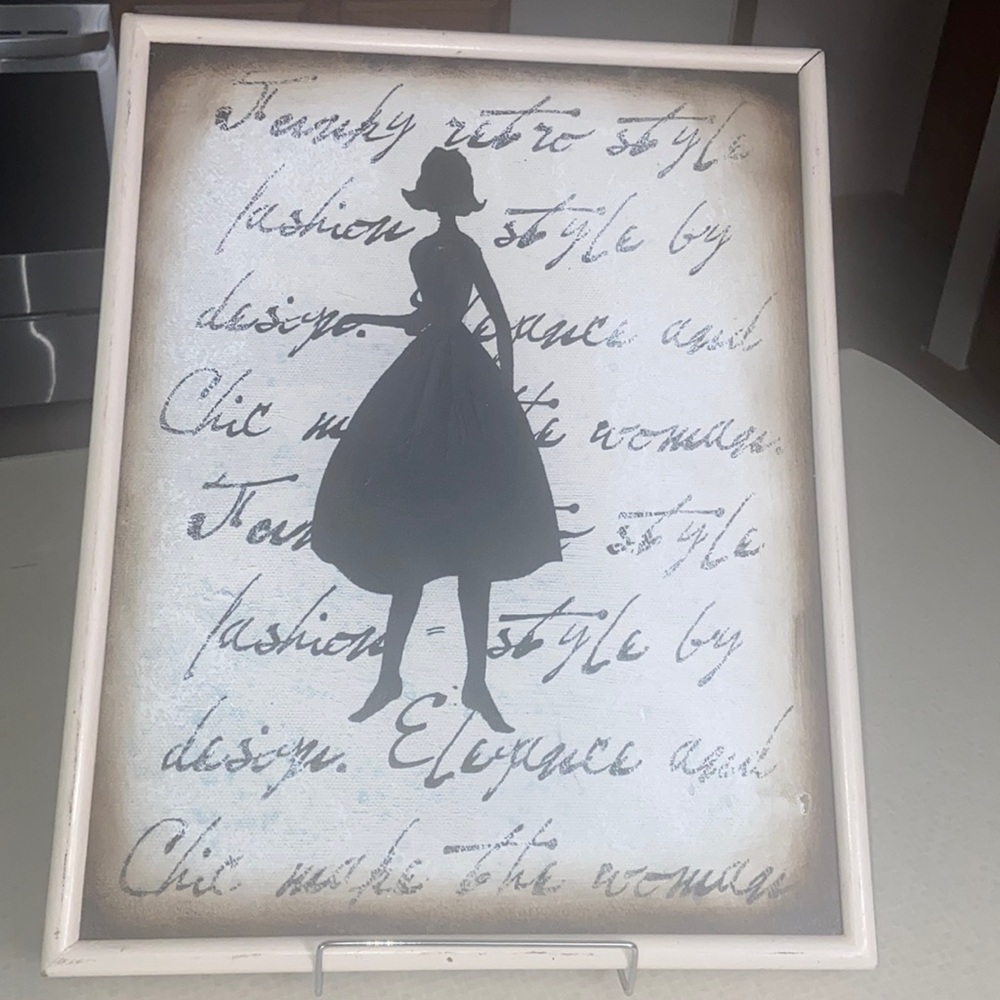 Funky retro style
fashion style by
design. Elegance and
Chic the woman.
style
fashion = style by
design. Elegance and
Chic make the woman